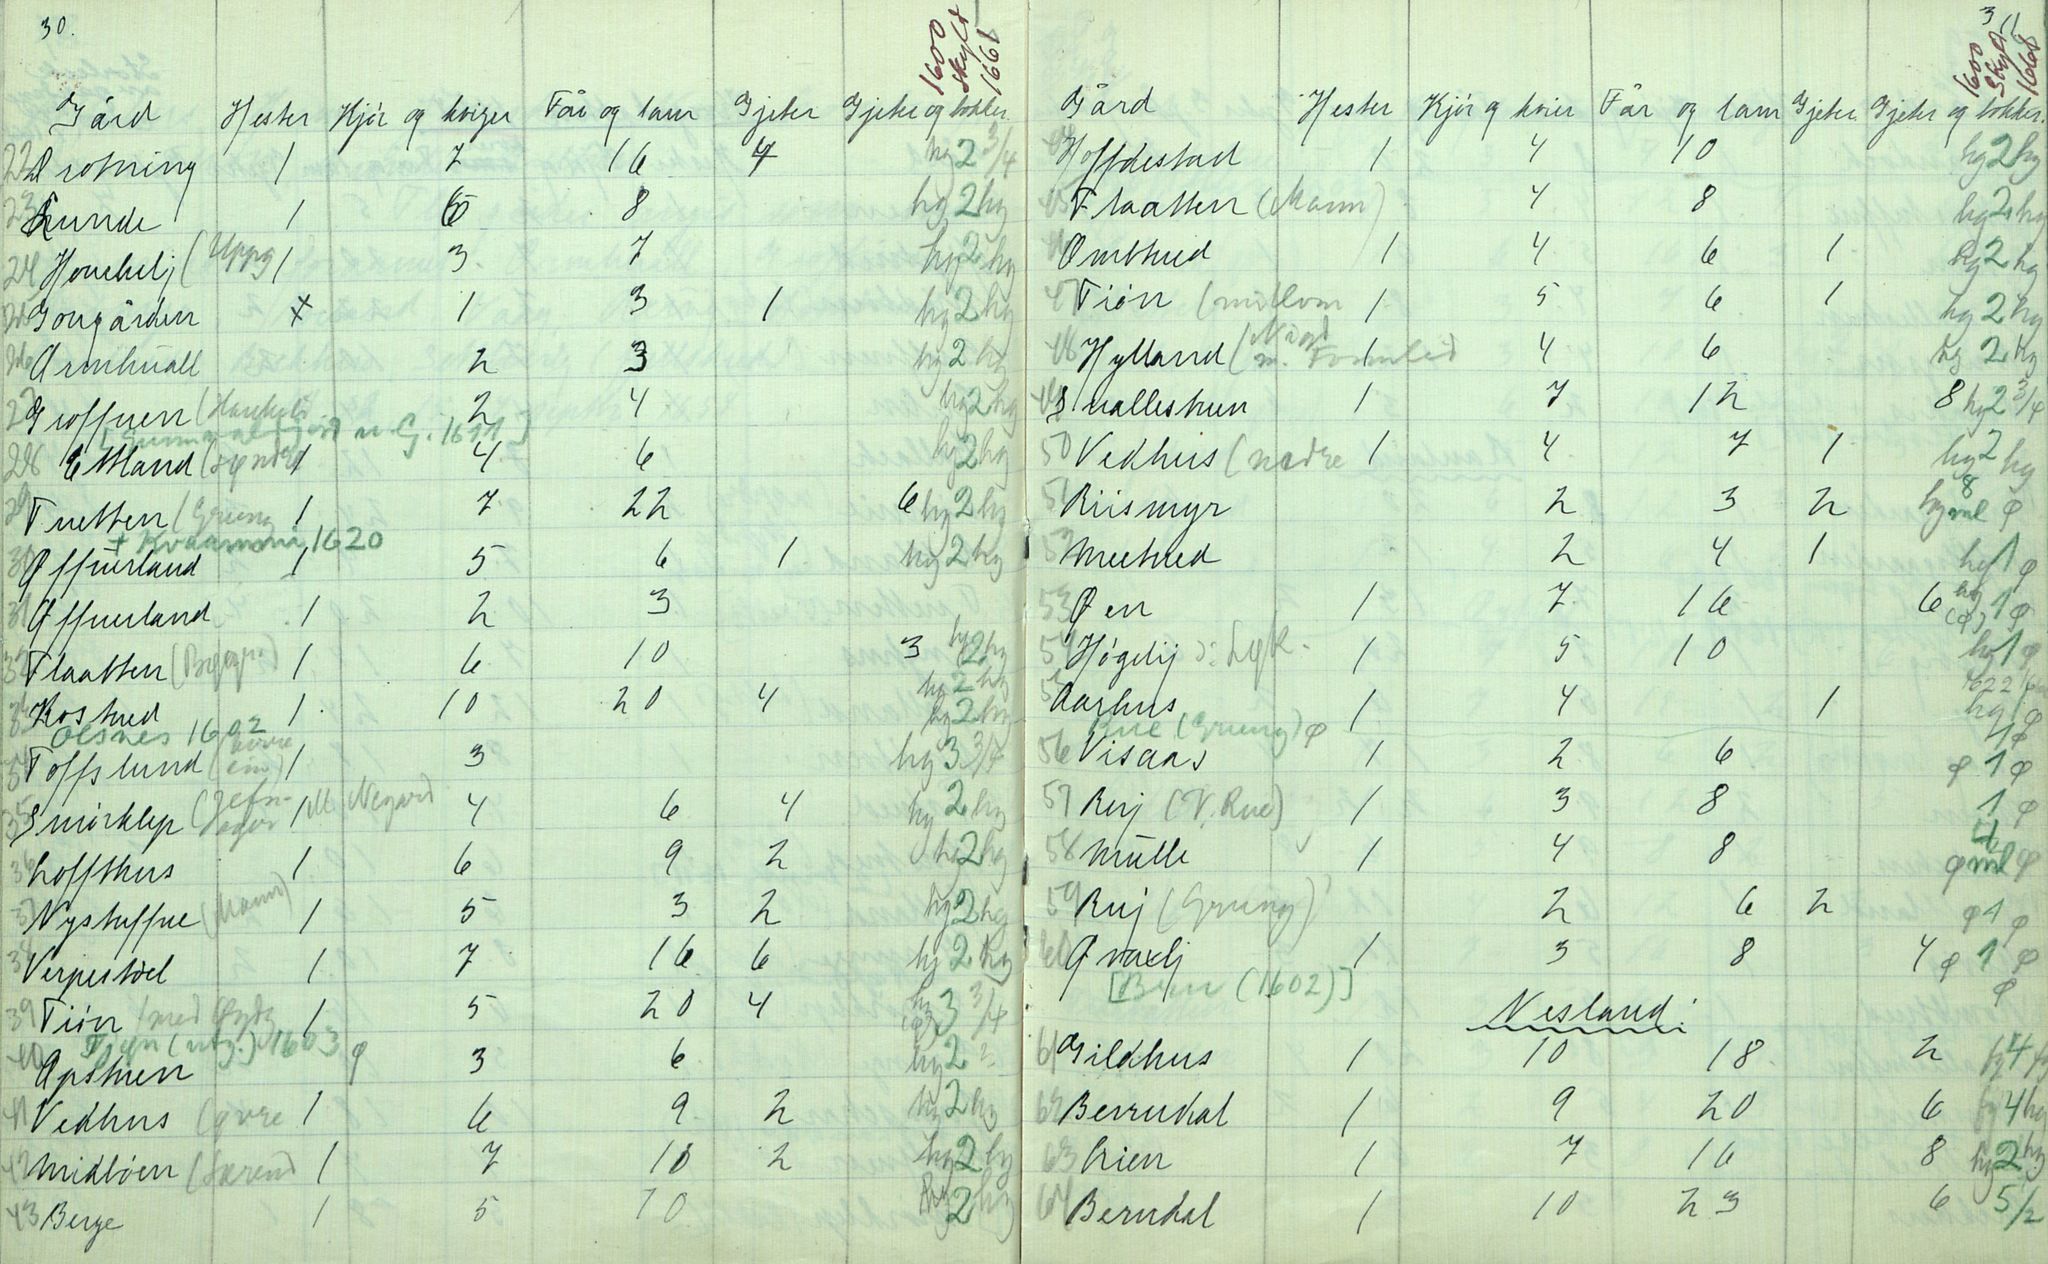 30.
1600 Skyld 1661
Gård Hester Kjör og kviger Får og lam Gjeter Gjeter og bokker
22 Drotning 1 7 16 4 hg 2 3/4
23 Lunde 1 6 8 hg 2 hg
24 Houchelj (Uppg 1 3 7 hg 2 hg
25 Gorgården x 1 3 1 hg 2 hg
26 Armhuall 2 3 hg 2 hg
27 Groffuen (Haukeli 2 4 hg 2 hg
n. G. 1611]
28 Ettland (synde 1 4 6 hg 2 hg
29 Tuetten (Grung 1 7 22 6 hg 2 hg
+ Kvaammi 1620
30 Øffuerland 1 5 6 1 hg 2 hg
31 Øffuerland 1 2 3
32 Flaatten (Bygg.) 1 6 10 3 hg 2 hg
hg 2 hg
33 Kostued 1 10 20 4 hg 2 hg
Olsnes 1602
34 Toffslund (øvre ein) 1 3 hg 3 3/4
35 Smörklep 1 M. Negard 4 6 4 hg 2 hg
36 Loffthus 1 6 9 2 hg 2 hg
37 Nystuffue (Mann) 1 5 3 2 hg 2 hg
38 Verpestöel 1 7 16 6 hg 2 hg
39 Tiön (med Øyda 1 5 20 4 hg (φ) 3 3/4
Tjyn (utg.) 1603
40 Opstuen φ 3 6 hg 2 2
41 Vedhus (øvre 1 6 9 2 hg 2 hg
42 Midböen (Særend 1 7 10 2 hg 2 hg
43 Berge 1 5 10 hg 2 hg
31
1600 Skyld 1668
Gård Hester Kjör og kvier Får og lam Gjeter Gjeter og bokker.
44 Hoffdestad 1 4 10 hg 2 hg
45 Flaatten (Mann) 4 8 hg 2 hg
46 Ombtued 1 4 6 1 hg 2 hg
47 Tiön (millom 1 5 6 1 hg 2 hg
48 Hylland (Nigard m. Formlid 1 4 6 hg 2 hg
49 Snallestuen 1 7 12 8 hg 2 3/4
50 Vedhus (nedre 1 4 7 1 hg 2 hg
51 Riismyr 2 3 2 hg 8 ml φ
52 Meetued 2 4 1 hg 1 φ
53 Øen 1 7 16 6 hg (φ) 1 φ
54 Högelij 1 5 10 hg 1 φ
1622
55 Aarhus 1 4 1 hg 1 φ
Rue (Grung) φ 1 φ
56 Visaas 1 2 6 φ 1 φ
57 Ruj (V. Rue) 1 3 8 1 φ
58 Mülle 1 4 8 φ 4 ml φ
59 Ruj (Grung) 2 6 2 φ 1 φ
60 Qvaalj 1 3 8 4 φ 1 φ
[Bru (1602)] φ
Nesland:
61 Gildhus 1 10 18 2 fg 4 fg
62 Berrudal 1 9 20 6 fg 4 hg
63 Lien 1 7 16 8 hg 2 hg
64 Berrudal 1 10 23 6 5/2